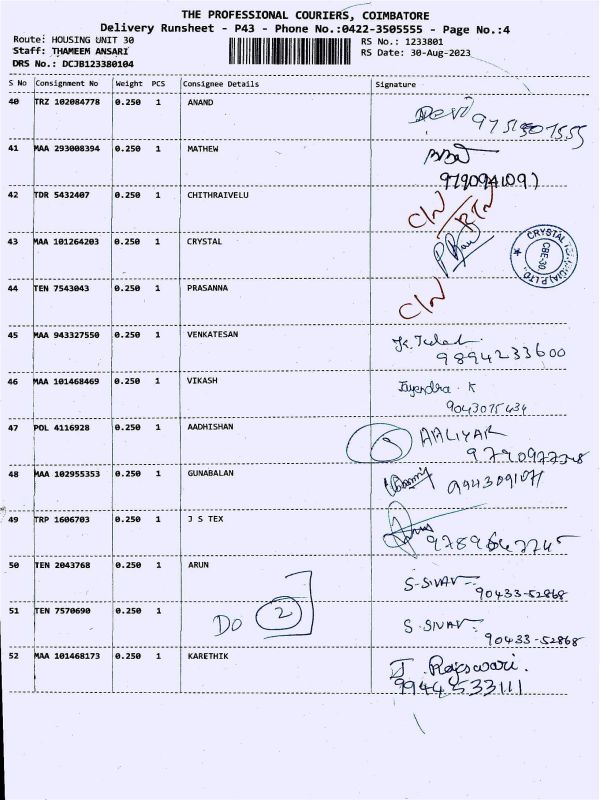 THE PROFESSIONAL COURIERS, COIMBATORE
Delivery Runsheet - P43 - Phone No.:0422-3505555 - Page No.:4
Route: HOUSING UNIT 30 RS No.: 1233801
Staff: THAMEEM ANSARI RS Date: 30-Aug-2023
DRS No.: DCJB123380104
S No Consignment No Weight PCS Consignee Details Signature
40 TRZ 102084778 0.250 1 ANAND
41 MAA 293008394 0.250 1 MATHEW
9790941091
42 TDR 5432407 0.250 1 CHITHRAIVELU
C/N
43 MAA 101264203 0.250 1 CRYSTAL
CRYSTAL
CBE-30
44 TEN 7543043 0.250 1 PRASANNA
C/N
45 MAA 943327550 0.250 1 VENKATESAN
9894233600
46 MAA 101468469 0.250 1 VIKASH
9043075434
47 POL 4116928 0.250 1 AADHISHAN
AALIYAR
48 MAA 102955353 0.250 1 GUNABALAN
9943091071
49 TRP 1606703 0.250 1 J S TEX
50 TEN 2043768 0.250 1 ARUN
90433-52868
51 TEN 7570690 0.250 1
DO 2
90433-52868
52 MAA 101468173 0.250 1 KARETHIK
J. Rajeswari.
9944533111